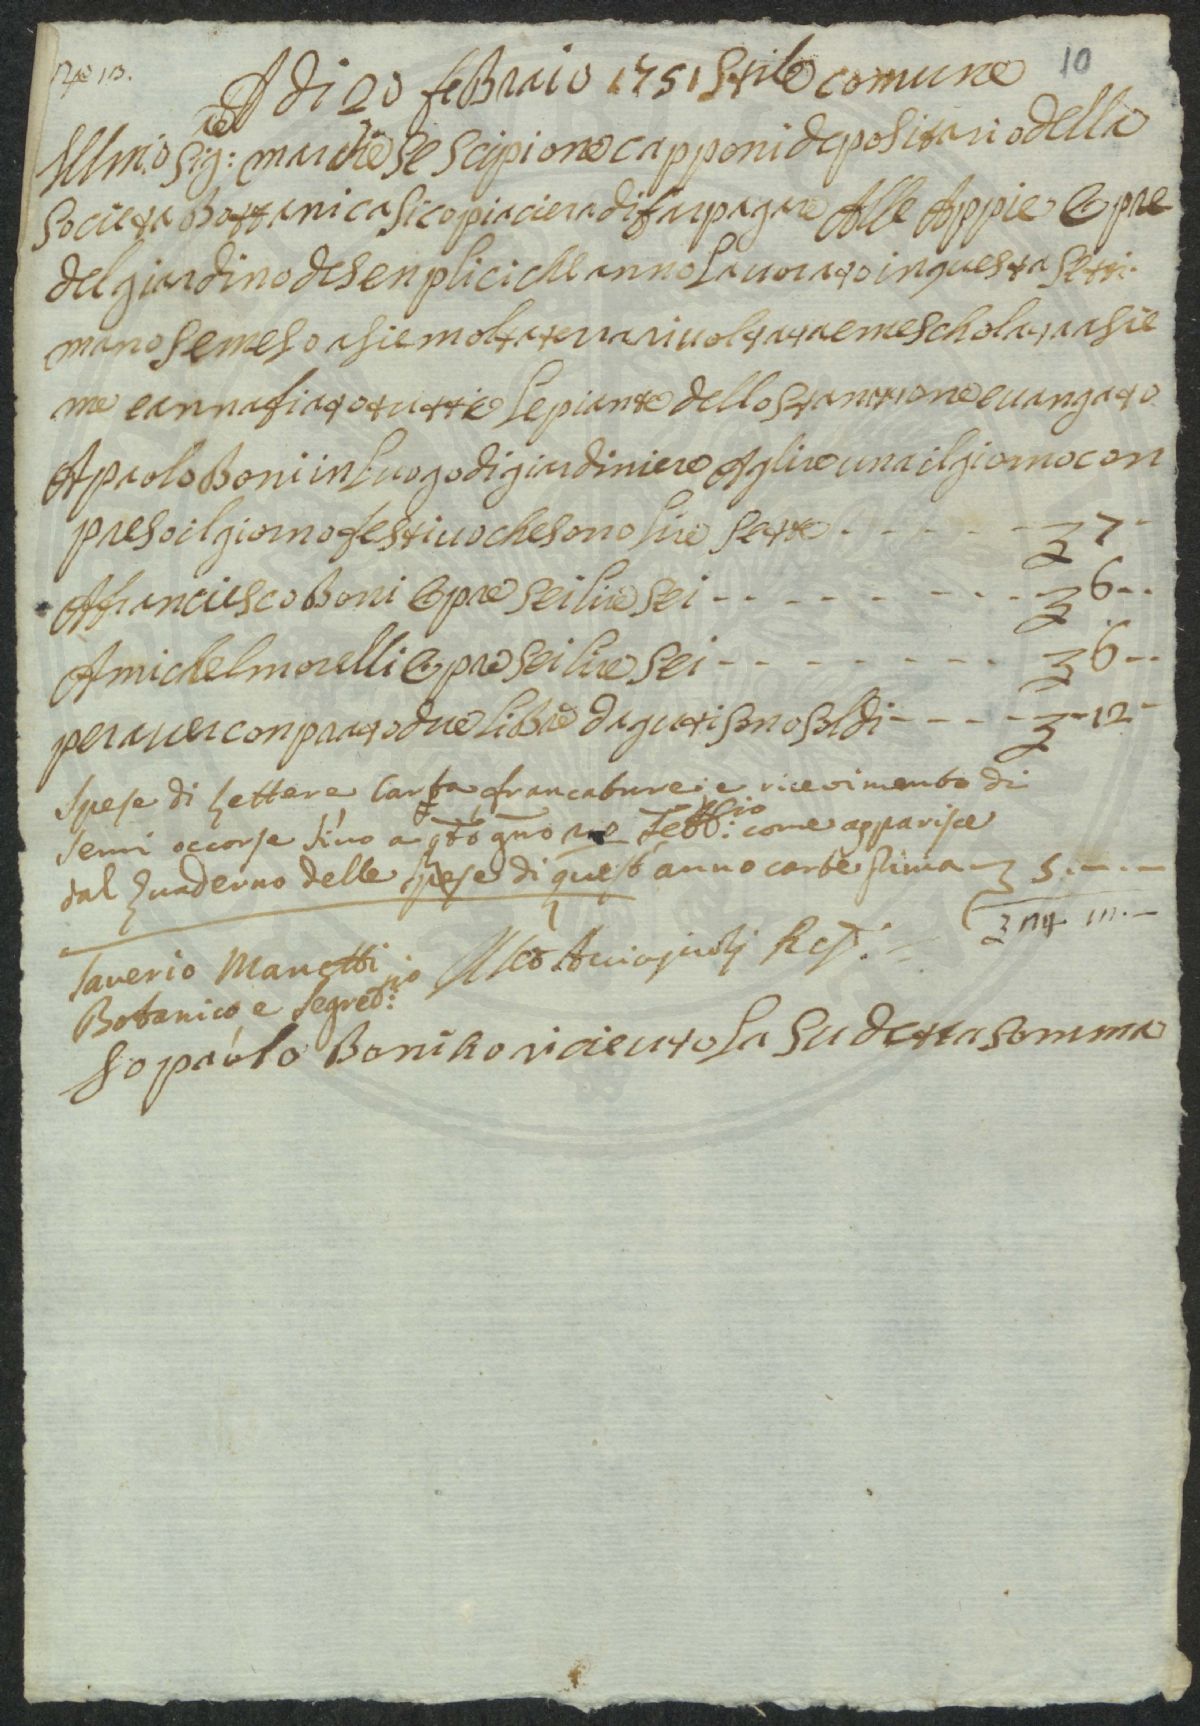 10
A di 20 feBraio 1751 Stile comune
Illmo Sig: marchese Scipione capponi depositario della
Societa Bottanica si copiaciera di far pagare Alle Appie Opre
del giardino de Senplici che anno Lauorato in questa Setti
mano Se meso asieme molta terra riuoltata e mescholata asie
me e annafiato tutte Le piante dello Stantione e uangato
A paolo Boni in Luogo di giardiniere A glire una il giorno con
preso il giorno festiuo che sono Lire Sette - - - - - 7 -
A franciesco Boni Opre Sei lire Sei - - - - - - - - - 6 - -
A michel morelli Opre Sei lire Sei - - - - - - - - 6 - -
per auer conprato due Libre d aguti sono Soldi - - - - - - 12 -
Spese di Lettere Carta francature, e ricevimento di
Semi occorse Sino a qto gno 20 Febb:io come apparisce
dal Quaderno delle Spese di quest' anno carte prima - 5. - . -
Saverio Manetti
Botanico e Segret:rio
Io paolo Boni ho riceuuto La Su detta somma